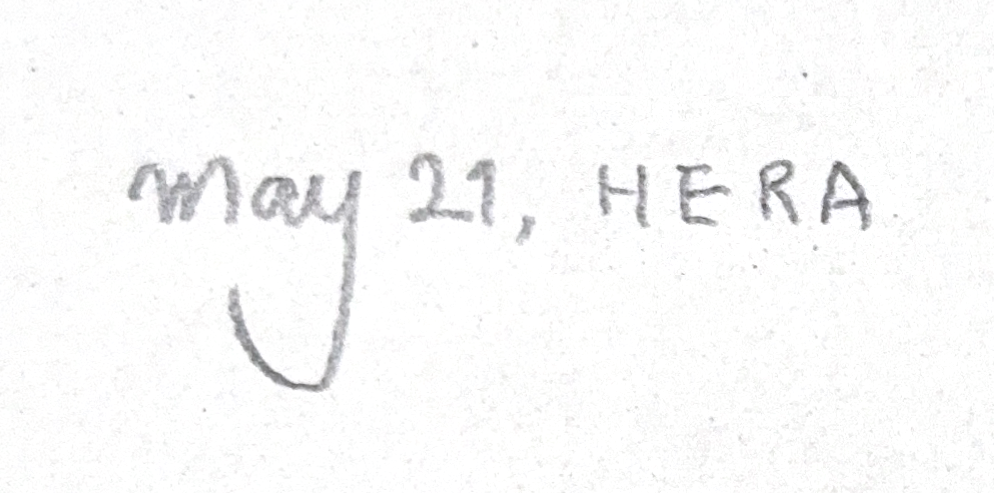 May 21, HERA